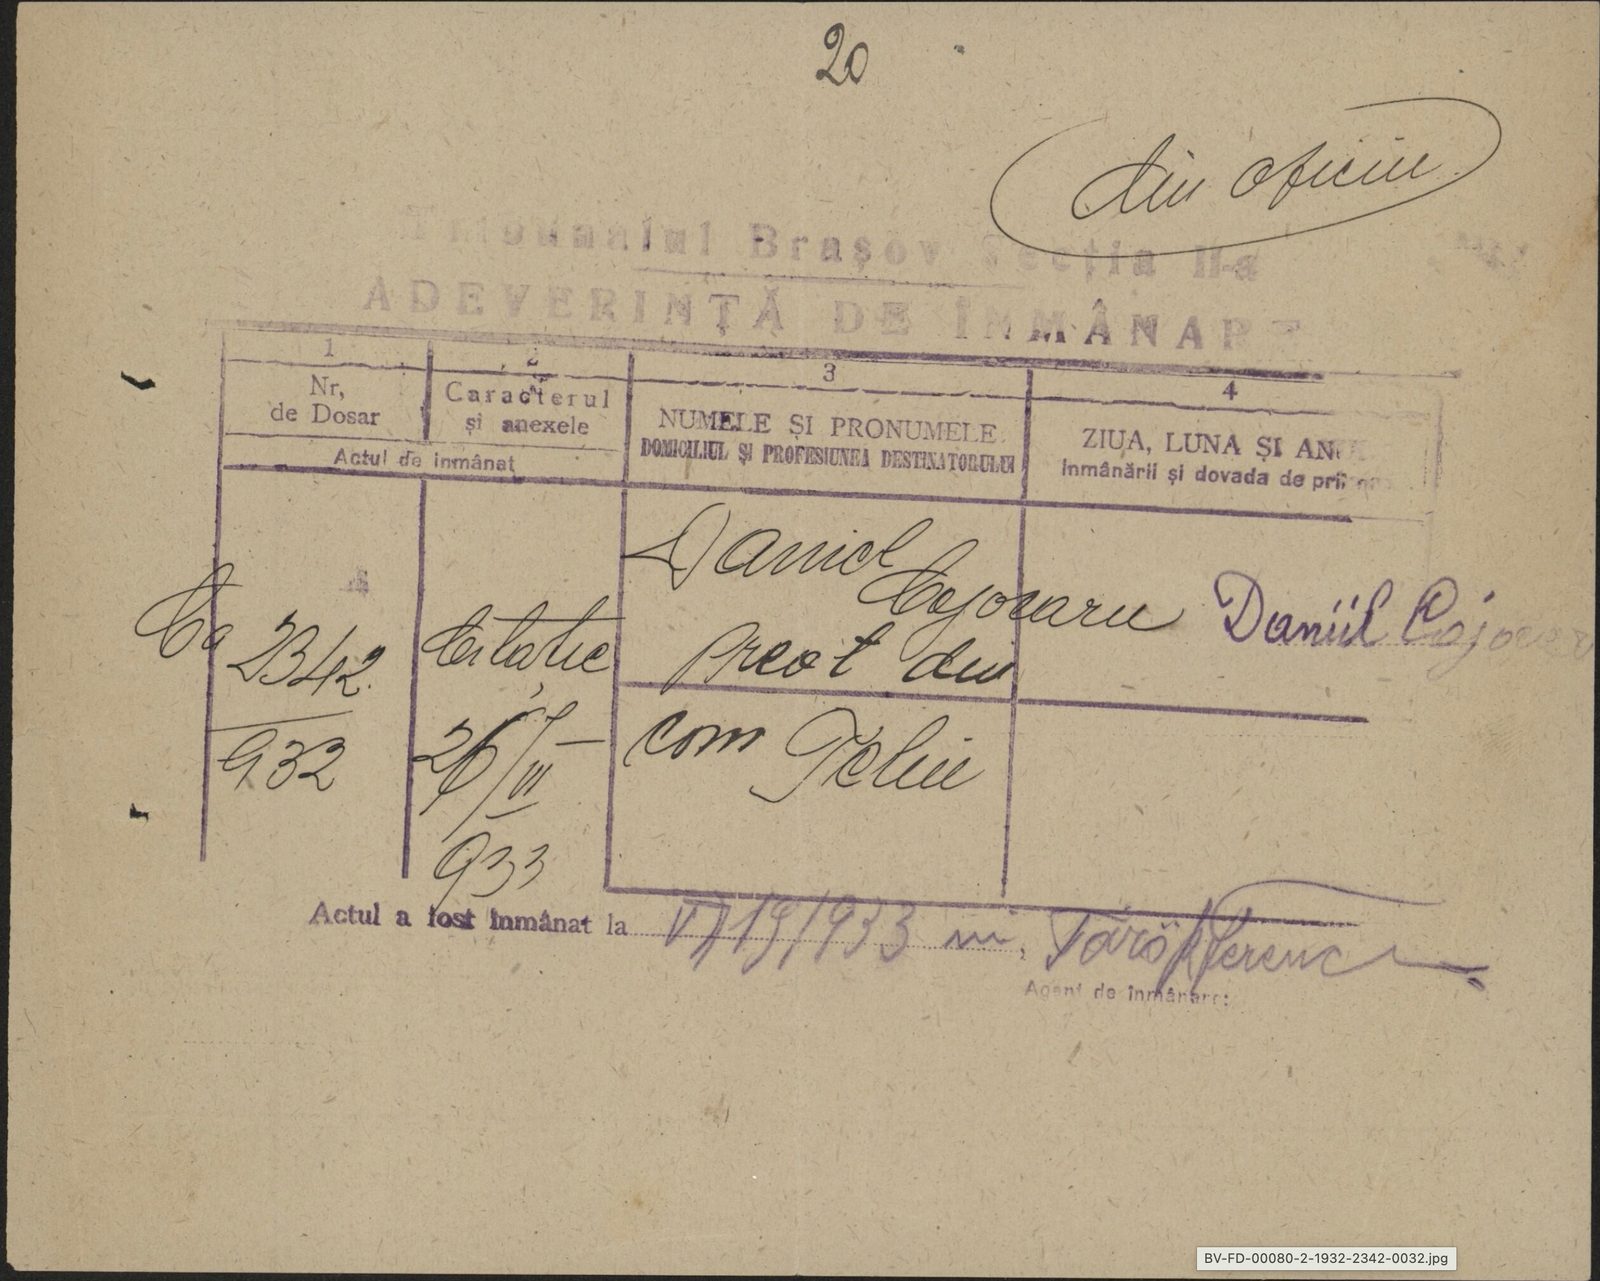 20
din oficiu
Tribunalul Brașov Secția II-a
ADEVERINȚĂ DE ÎNMÂNARE
1 2 3 4
Nr, de Dosar
Caracterul și anexele
Actul de inmânat
NUMELE ȘI PRONUMELE
DOMICILIUL ȘI PROFESIUNEA DESTINATORULUI
ZIUA, LUNA ȘI ANUL
inmânării și dovada de
2342
932
Citație
26/VI
933
Daniel
Cojocaru
preot din
com Teliu
Daniil Cojocaru
Actul a fost înmânat la VI/19/1933 Ferenc
Agent de înmânare:
BV-FD-00080-2-1932-2342-0032.jpg